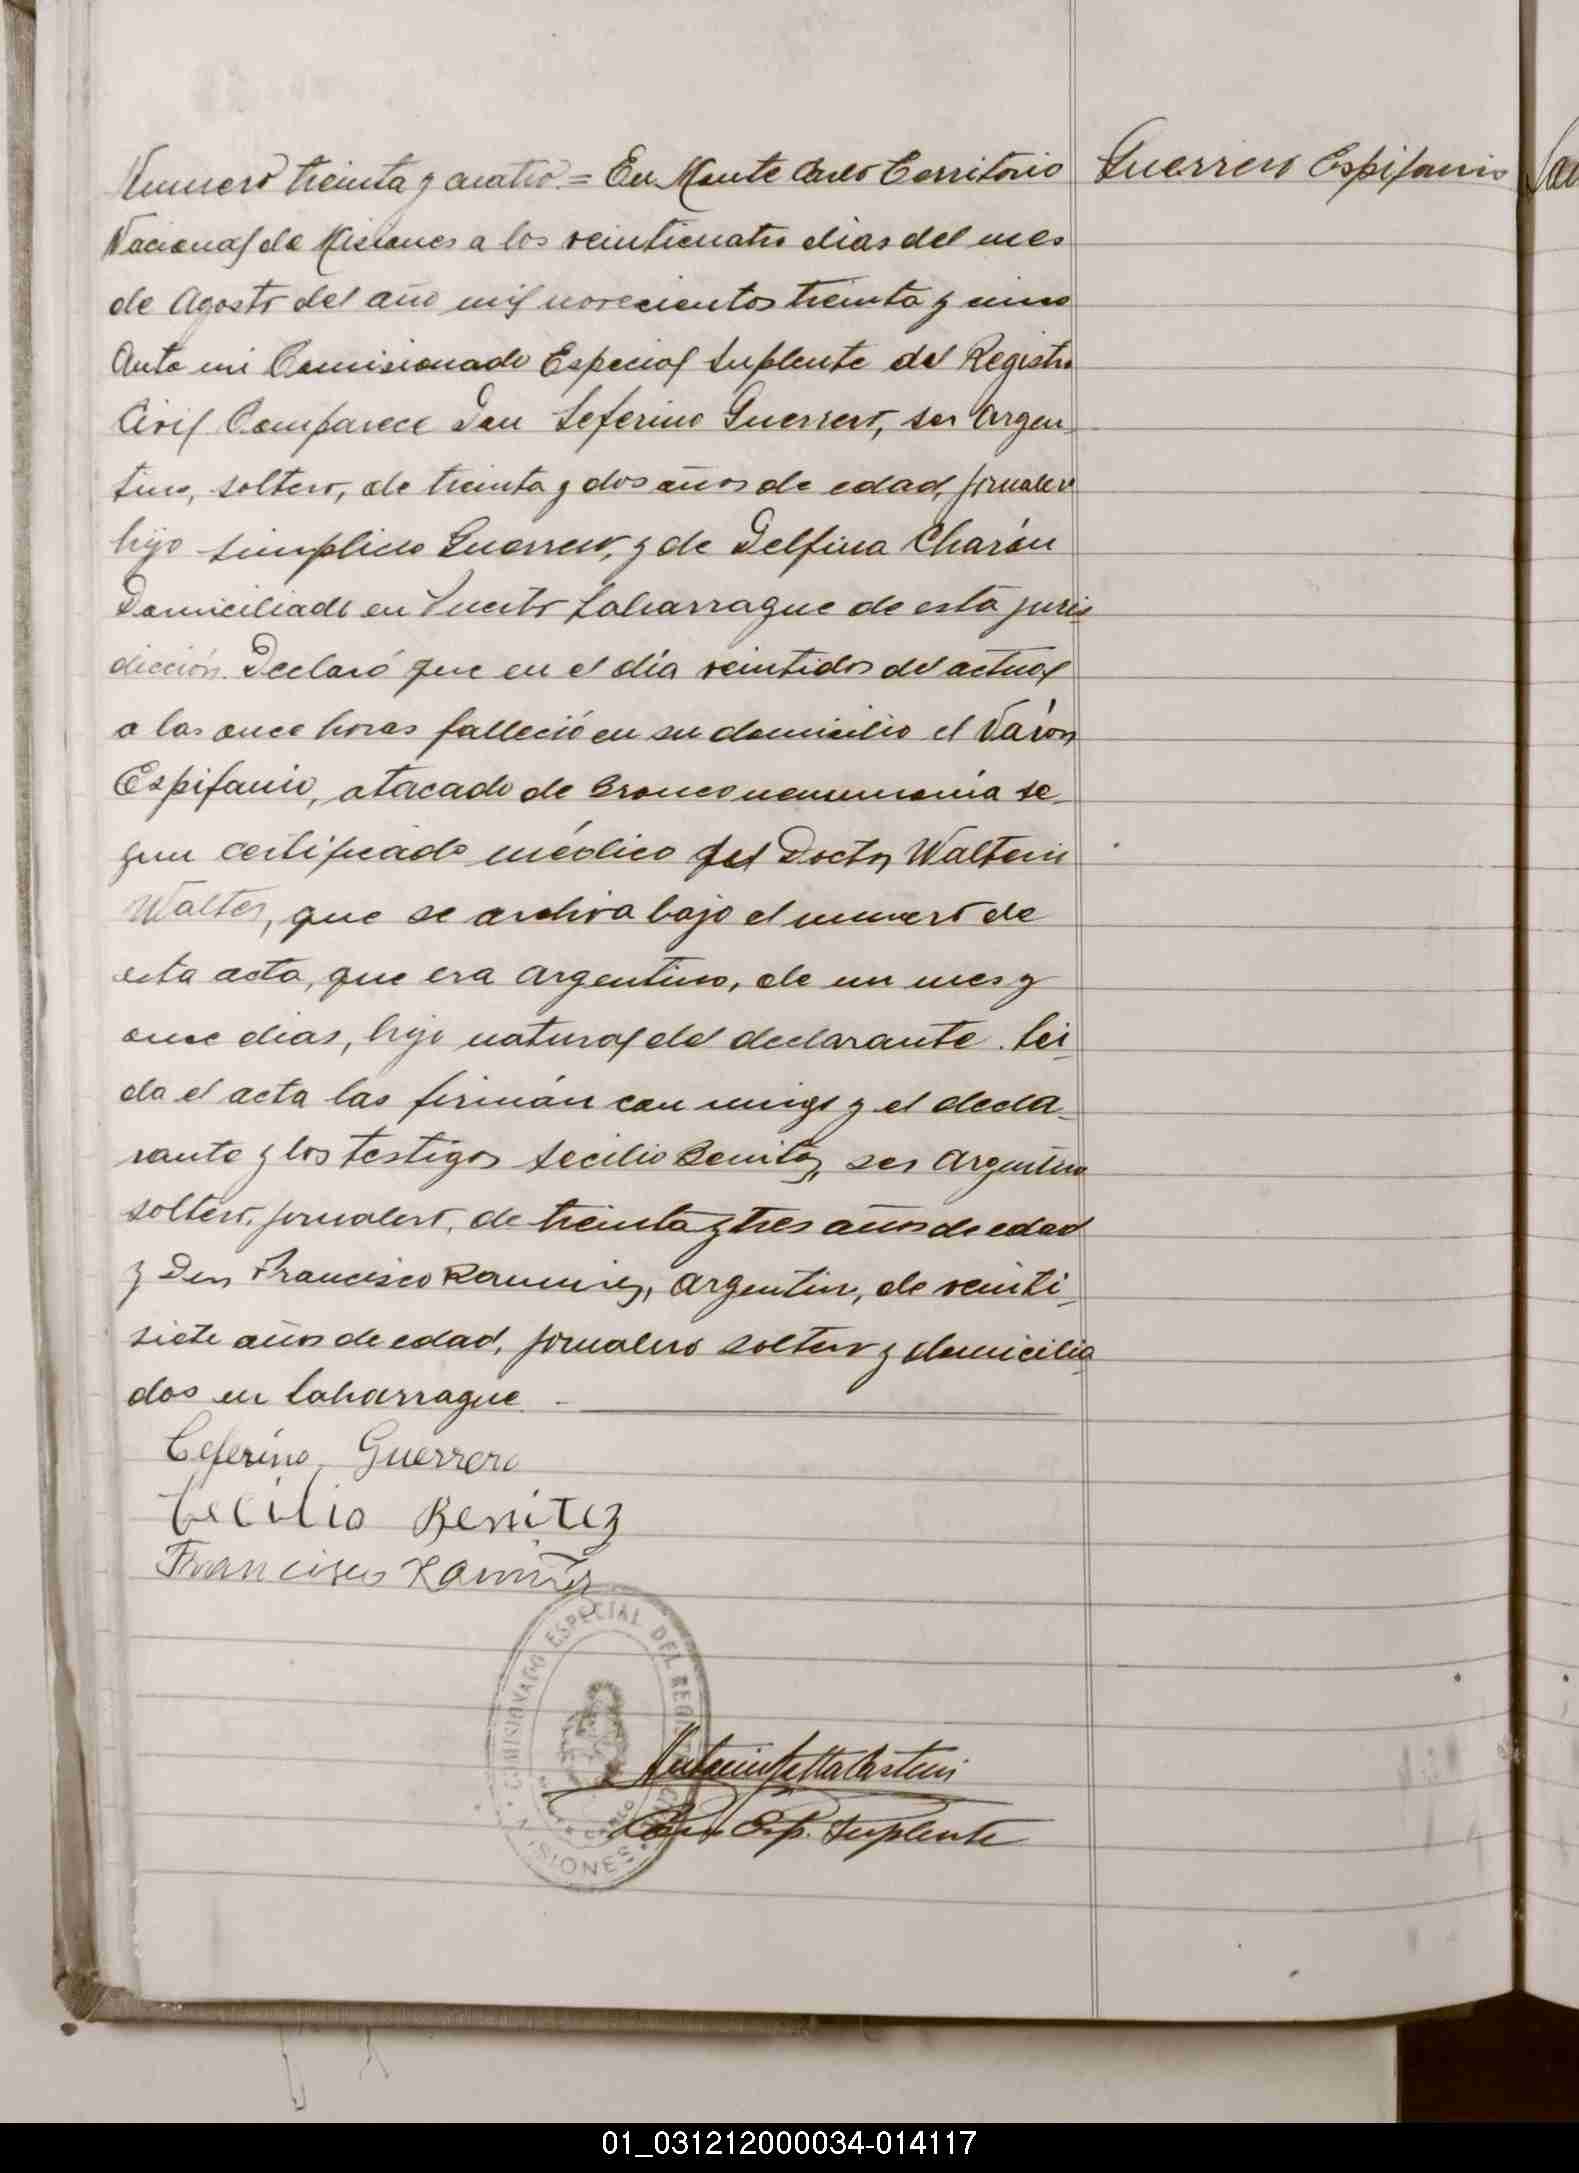 Numero treinta y cuatro.= En Monte Carlo Territorio
Nacional de Misiones a los veinticuatro dias del mes
de Agosto del año mil novecientos treinta y cinco
Ante mi Comisionado Especial Suplente del Registro
Civil Comparece Don Seferino Guerrero, ser Argen-
tino, soltero, de treinta y dos años de edad, jornalero
hijo Simplicio Guerrero, y de Delfina Charán
Domiciliado en Puerto Laharrague de esta juris
dicción. Declaró que en el día veintidos del actual
a las once horas falleció en su domicilio el Varón
Espifanio, atacado de bronconeumonia se-
gun certificado médico del Doctor
Walter, que se archiva bajo el numero de
esta acta, que era argentino, de un mes y
once dias, hijo natural del declarante. Lei-
da el acta las firmán con migo y el decla-
rante y los testigos Secilio Benitez, ser Argentino
soltero, jornalero, de treinta y tres años de edad
y Don Francisco Ramirez, argentino, de veinti-
siete años de edad, jornalero soltero y domicilia
dos en Laharrague. -
Ceferino Guerrero
Cecilio Benitez
Francisco Ramirez
COMISIONADO ESPECIAL DEL REGISTRO CIVIL
MONTE CARLO
MISIONES
Com Esp. Suplente
Guerrero Espifanio
01_031212000034-014117